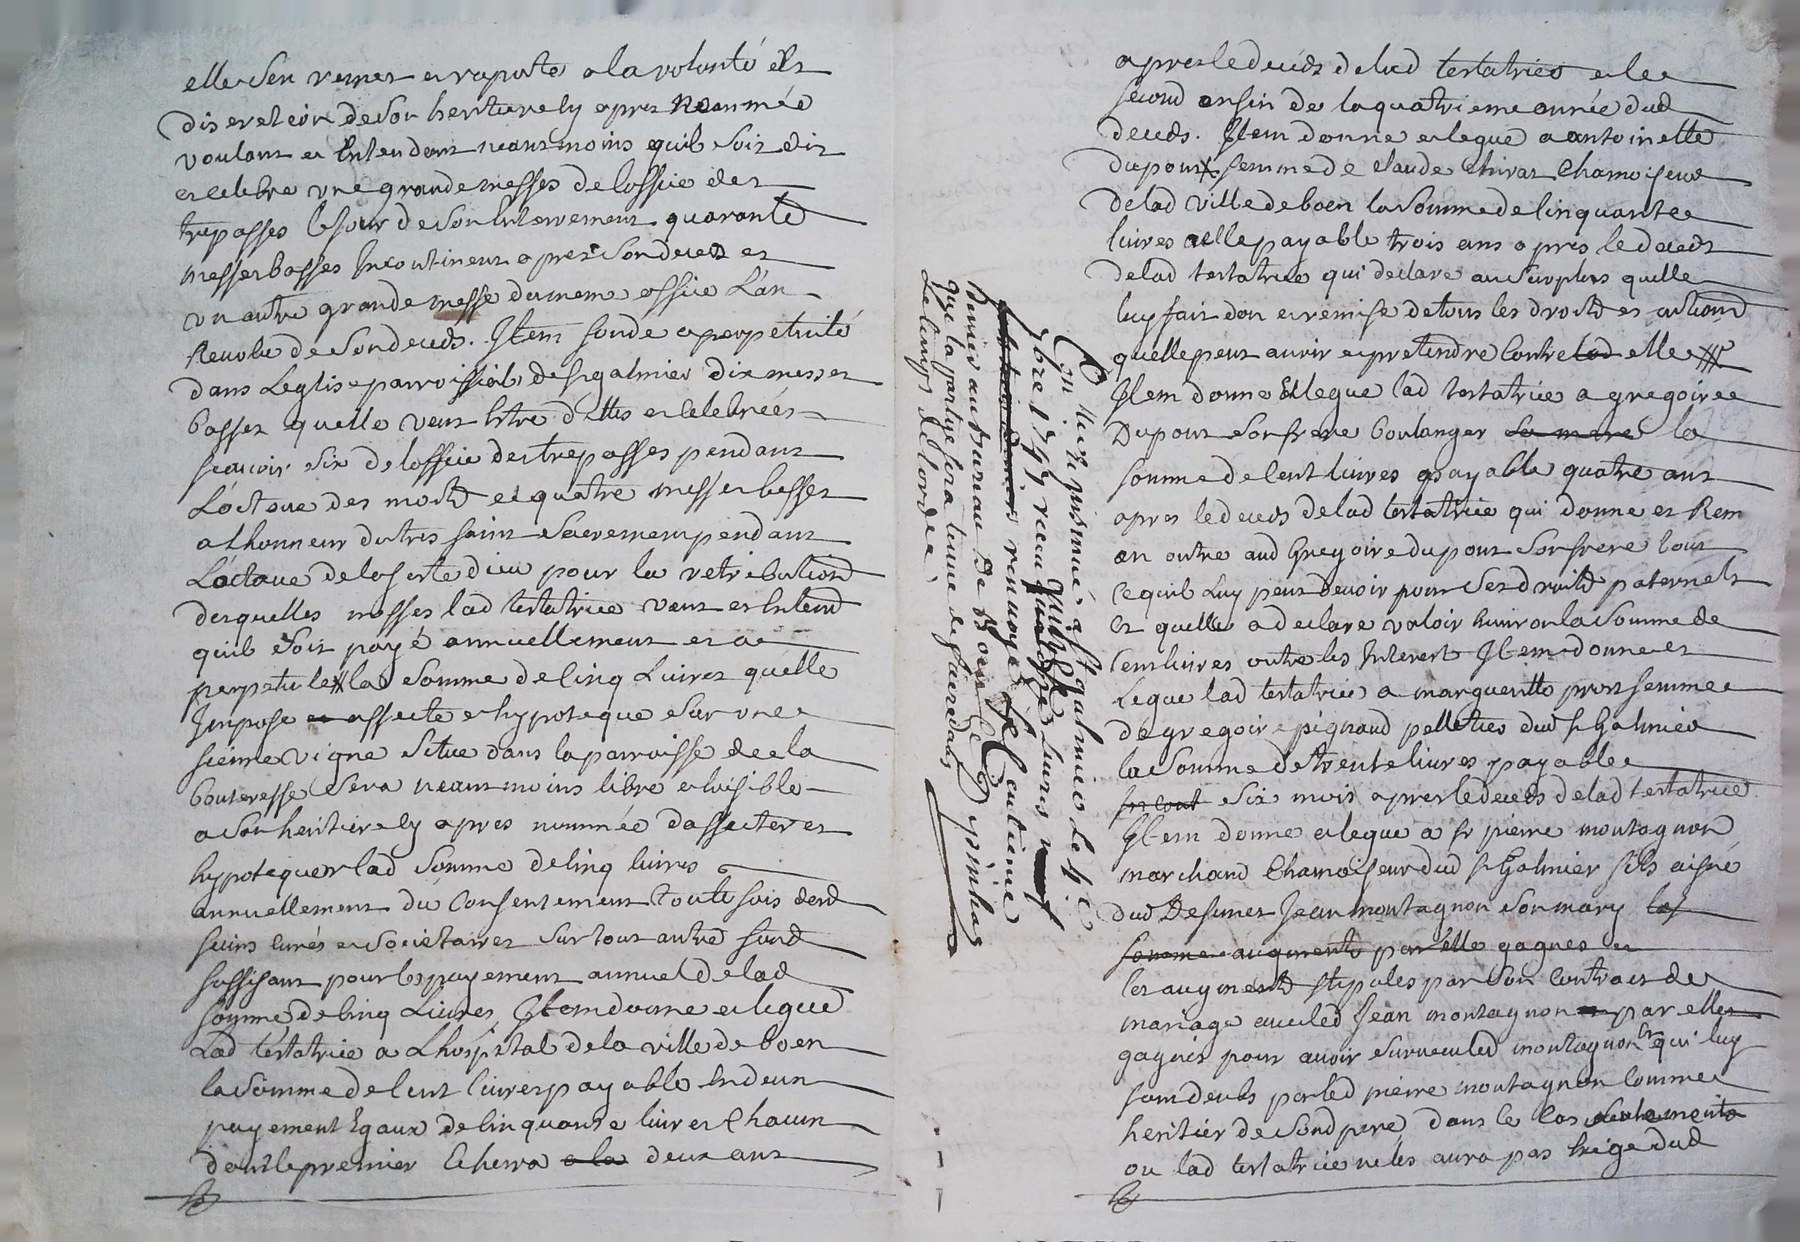 elle sen remet et raporte a la volonté et
discretion de son heritiere cy apres nommée
voulant et entendant neantmoins quil soit dit
et celebre une grande messes de loffice des
trepasses le jour de son enterrement quarante
messes basses incontinent apres son deces et
un autre grande messe du meme office l'an
revolu de son deceds. Item fonde a perpetuité
dans Leglise parroissiale de st galmier dix messes
basses quelle veut etre dittes et celebrées
scavoir six de loffice des trepasses pendant
L'octave des morts et quatre messes basses
a Lhonneur du tres saint sacrement pendant
L'octave de la feste dieu pour la retribution
desquelles messes lad testatrice veut et entend
quil soit payé annuellement et a
perpetuite la somme de cinq Livres quelle
Impose affecte et hypoteque sur une
sienne vigne situe dans la parroisse de la
bouteresse sera neantmoins libre et loisible
a son heritiere cy apres nommée daffecter et
hypotequer lad somme de cinq livres
annuellement du consentement toutefois desd
sieurs curés et societaires sur tout autre fond
suffisant pour les payement annuel de lad
somme de cinq Livres Item donne et legue
Lad testatrice a Lhospital de la ville de boen
la somme de cent livres payable en deux
payement Egaux de cinquante livres chacun
dont le premier echerra a la deux ans
Con[...] a st galmier le 4e
9bre 1747 receu livres
renvoyé
Bonnier au bureau de Boen
que la partye sera tenue de faire dans
le temps de lordce.
apres le deceds de lad testatrice et le
second en fin de la quatrieme année dud
deceds. Item donne et legue a antoinette
dupont femme de Claude Chirat Chamoiseur
de lad ville de boen la somme de cinquante
livres a elle payable trois ans apres le deceds
de lad testatrice qui declare au surplus quelle
luy fait don et remise de tous les droits et actions
quelle peut avoir et pretendre contre lad elle
Item donne et legue lad testatrice a gregoire
Dupont son frere boulanger la
somme de cent livres payable quatre ans
apres le deceds de lad testatrice qui donne et Rem
en outre aud Gregoire dupont son frere tout
ce quil Luy peut devoir pour ses droits paternels
et quelle a declare valoir environ la somme de
cent livres outre les Interest Item donne et
Legue lad testatrice a margueritte pront femme
de gregoire pignaud pelletier dud st Galmier
la somme de trente livres payable
six mois apres le deceds de lad testatrice
Item donne et legue a sr pierre montagnon
marchand Chamoiseur dud st Galmier fils aisné
dud Defunct Jean montagnon son mary les
somme augment par elle gagnes et
les augments stipules par son contract de
mariage avec led Jean montagnon par elle
gagnés pour avoir survecu led montagnon et qui luy
sont deubs par led pierre montagnon comme
heritier de sond pere dans le cas seulement
ou lad testatrice ne les aura pas exigé dud